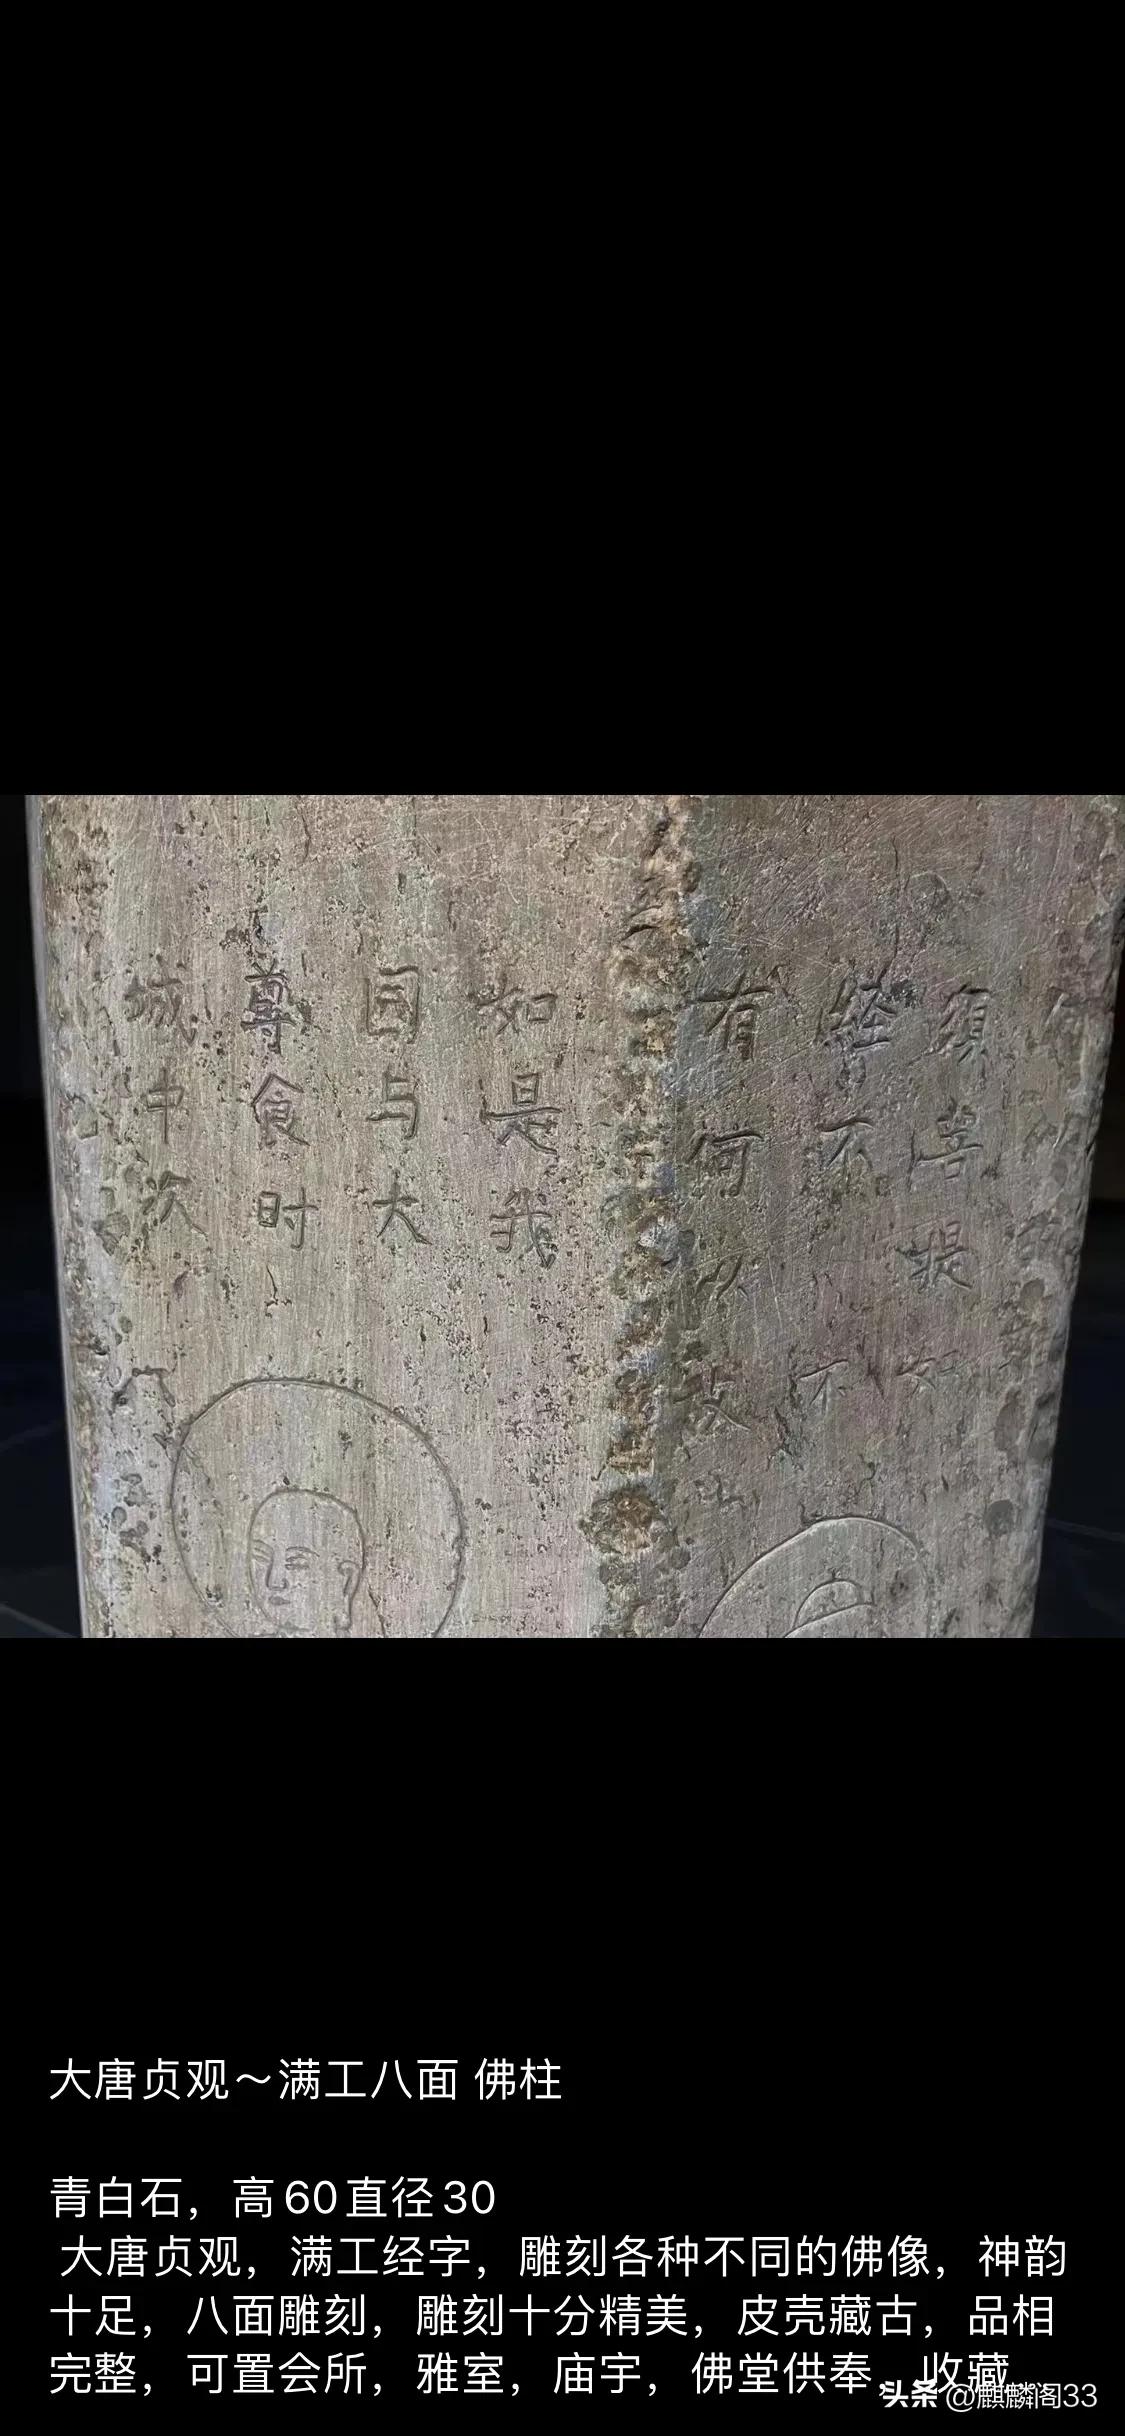 如是我
园与大
尊食时
城中次
有何以故
経不不
須菩提如
大唐贞观～满工八面 佛柱
青白石，高60直径30
大唐贞观，满工经字，雕刻各种不同的佛像，神韵
十足，八面雕刻，雕刻十分精美，皮壳藏古，品相
完整，可置会所，雅室，庙宇，佛堂供奉，收藏
头条 @麒麟阁33